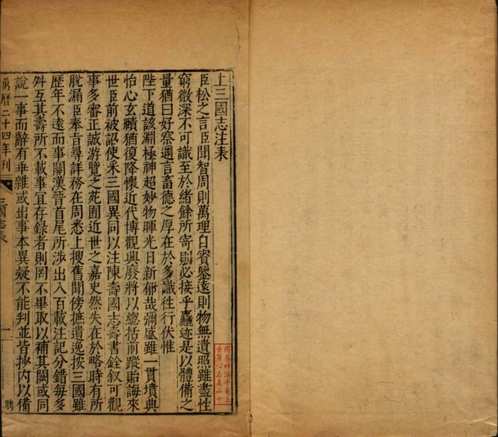 上三國志注表
臣松之言臣聞智周則萬理自賓鑒遠則物無遺照雖盡性
窮微深不可識至於緒餘所寄則必接乎麤迹是以體備之
量猶曰好察邇言畜德之厚在於多識往行伏惟
陛下道該淵極神超妙物暉光日新郁哉彌盛雖一貫墳典
怡心玄賾猶復降懷近代博觀興廢將以總括前蹤貽誨來
世臣前被詔使采三國異同以注陳壽國志壽書銓叙可觀
事多審正誠游覽之苑囿近世之嘉史然失在於略時有所
脫漏臣奉旨尋詳務在周悉上搜舊聞傍摭遺逸按三國雖
歷年不遠而事關漢晉首尾所涉出入百載注記分錯每多
舛互其壽所不載事宜存錄者則罔不畢取以補其闕或同
說一事而辭有乖雜或出事本異疑不能判並皆抄內以備
萬曆二十四年刊
三國志表
一